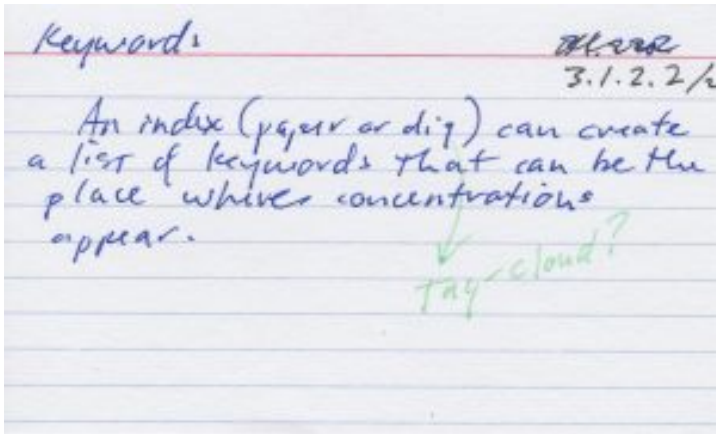 Keywords
3.1.2.2/
An index (paper or dig) can create
a list of keywords that can be the
place where concentrations
appear.
tag-cloud?